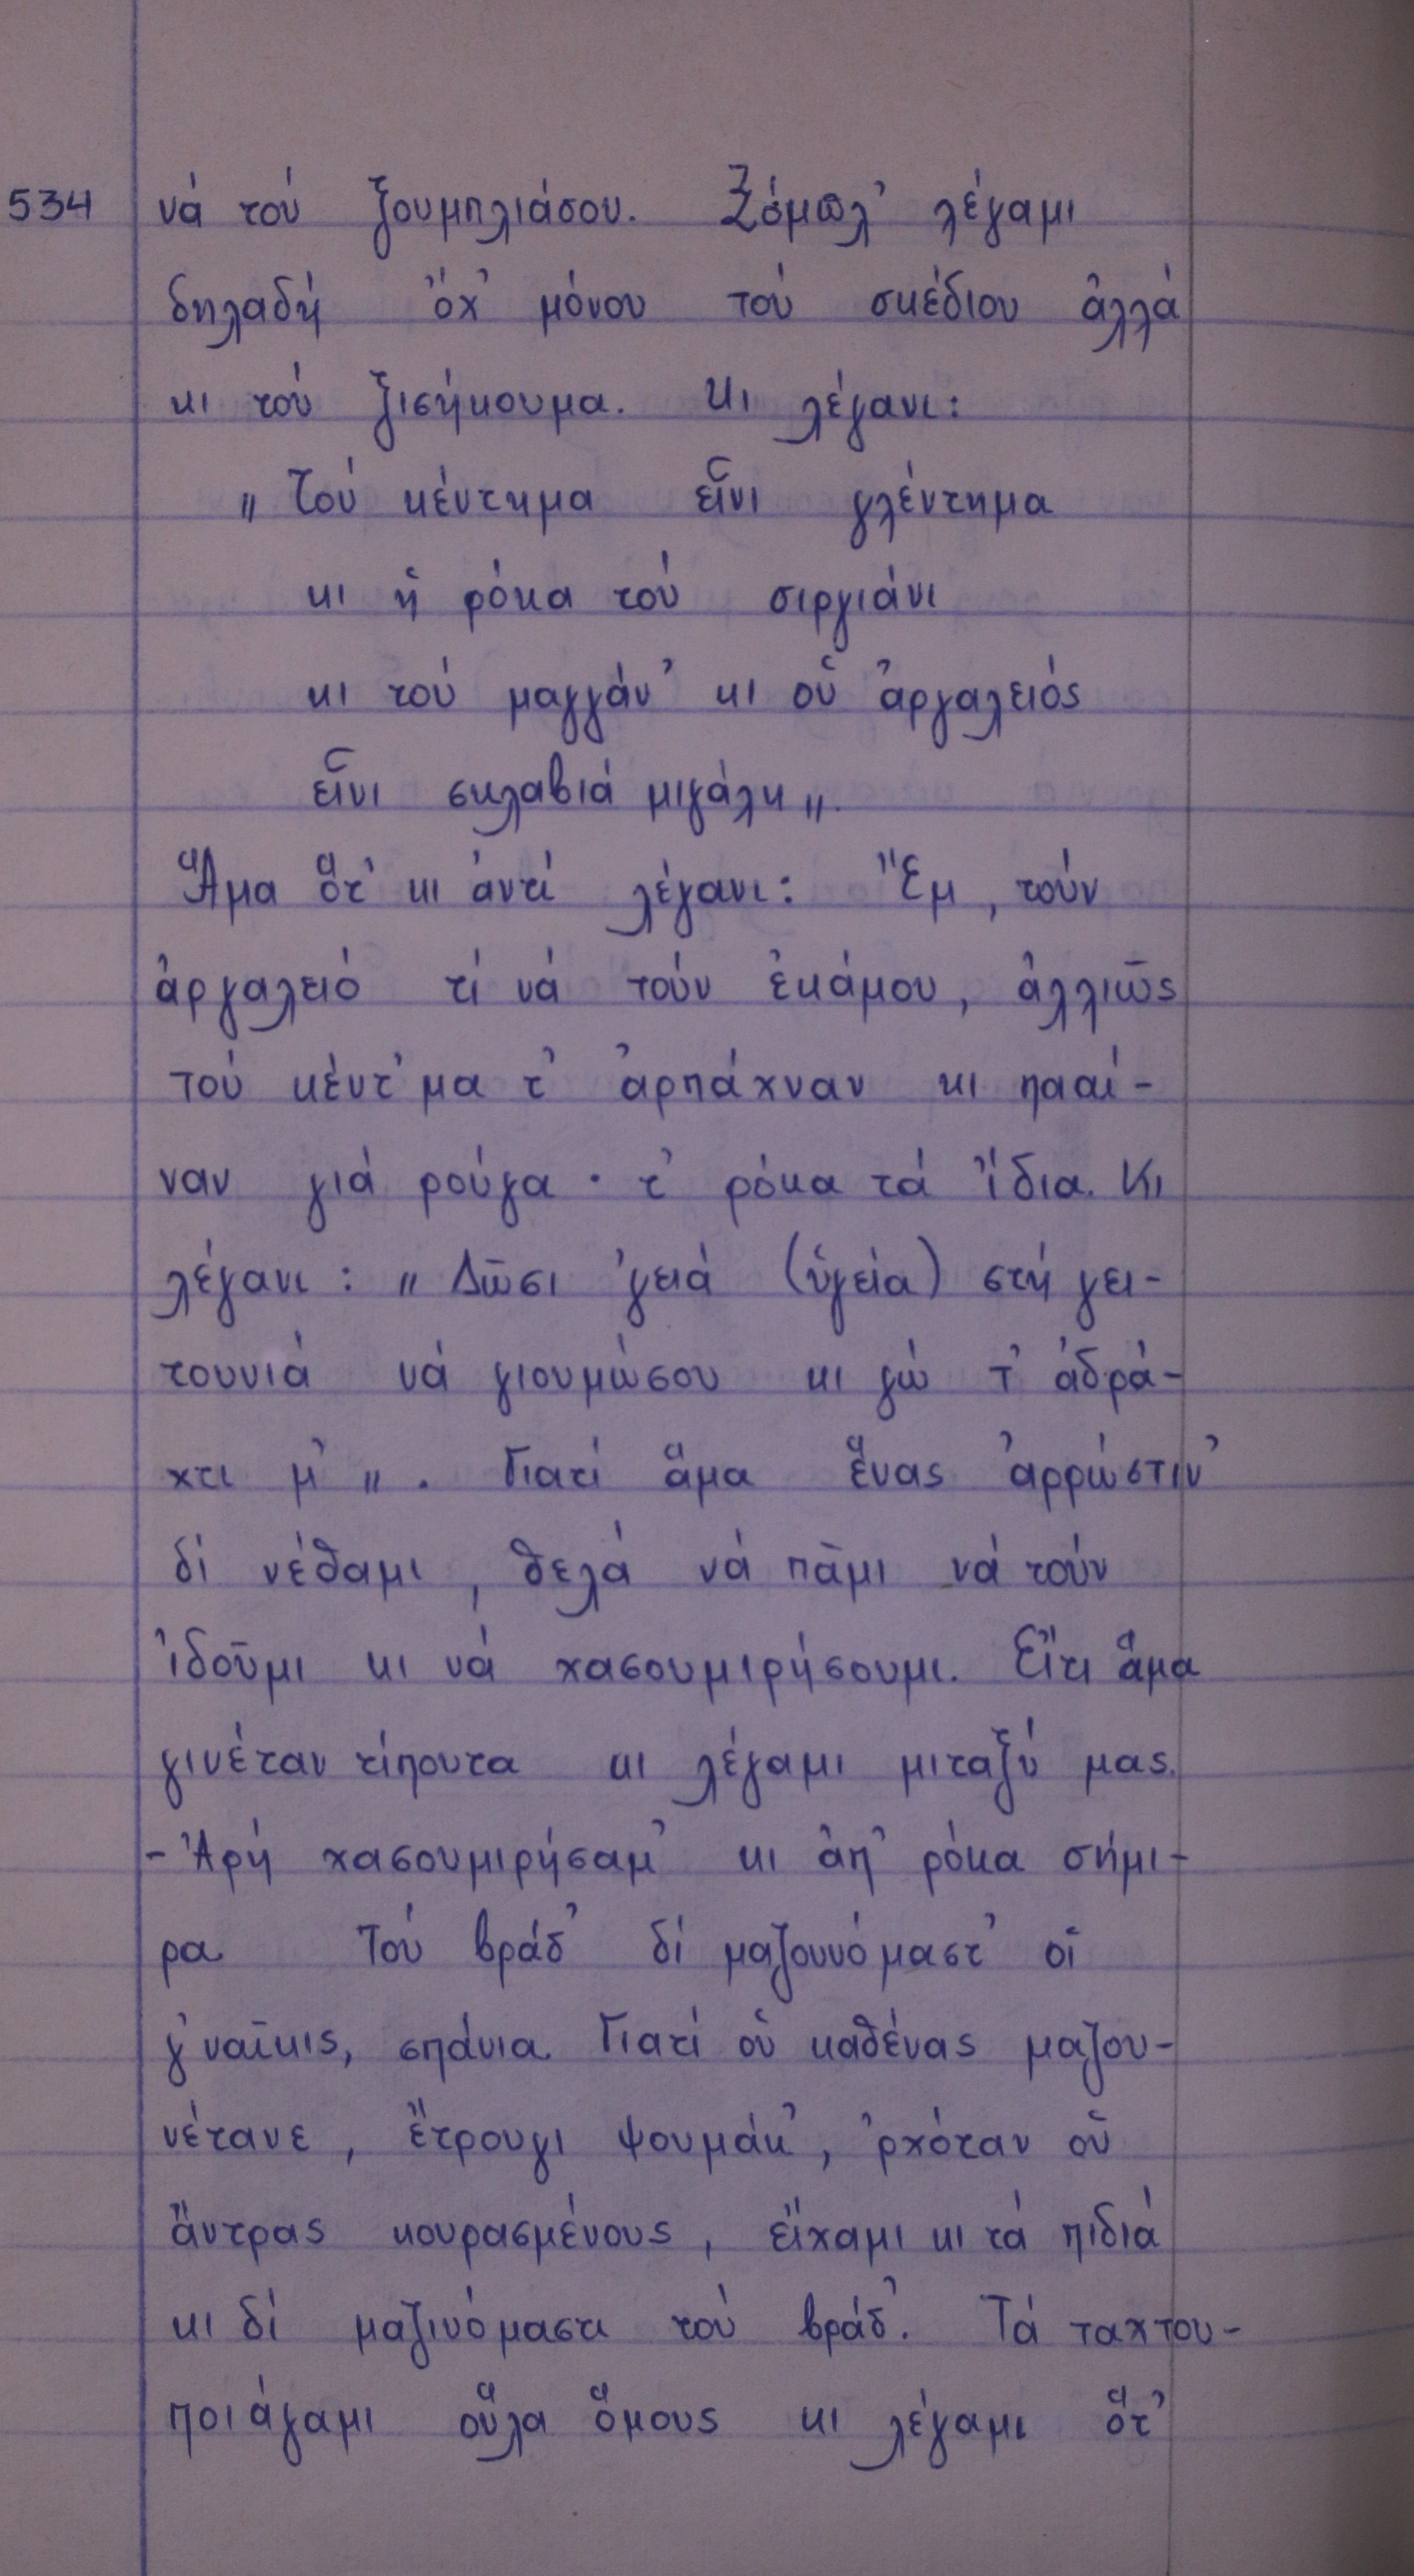 534 νά τού ξουμπλιάσου. Ξόμπλ' λέγαμι
δηλαδή ὄχ' μόνου τού σκέδιου ἀλλά
κι τού ξισήκουμα. Κι λέγανι:
„ Τού κέντημα εἶνι γλέντημα
κι ἡ ρόκα τού σιργιάνι
κι τού μαγγάν' κι οὑ ἀργαλειός
εἶνι σκλαβιά μιγάλη „.
Ἅμα ὅτ' κι ἀντί λέγανι: Ἔμ, τούν
ἀργαλειό τί νά τούν ἐκάμου, ἀλλιῶς
τού κέντ'μα τ' ἀρπάχναν κι πααί-
ναν γιά ρούγα · τ' ρόκα τά ἴδια. Κι
λέγανι: „ Δῶσι 'γειά (ὑγεία) στή γει-
τουνιά νά γιουμώσου κι γώ τ' ἀδρά-
χτι μ' „. Γιατί ἅμα ἕνας ἀρρώστιν'
δί νέθαμι, θελά νά πᾶμι νά τούν
ἰδοῦμι κι νά χασουμιρήσουμι. Εἴτι ἅμα
γινέταν τίπουτα κι λέγαμι μιταξύ μας.
- Ἀρή χασουμιρήσαμ' κι ἀπ' ρόκα σήμι-
ρα Τού βράδ' δί μαζουνόμαστ' οἱ
γ'ναῖκις, σπάνια. Γιατί οὑ καθένας μαζου-
νέτανε, ἔτρουγι ψουμάκ', 'ρχόταν οὑ
ἄντρας κουρασμένους, εἴχαμι κι τά πιδιά
κι δί μαζινόμαστι τού βράδ'. Τά ταχτου-
ποιάγαμι οὕλα ὅμους κι λέγαμι ὅτ'